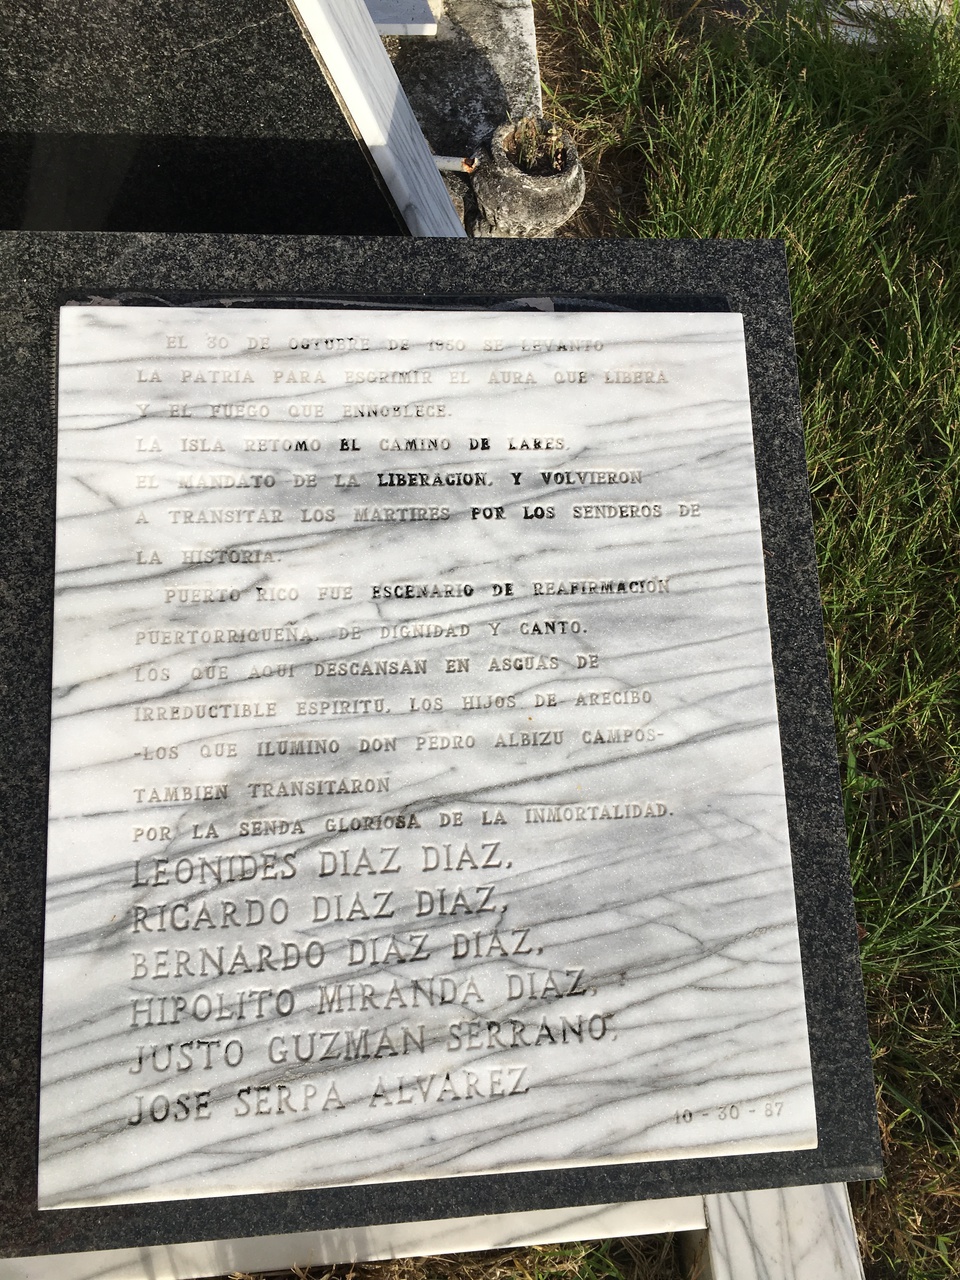 EL 30 DE OCTUBRE DE 1950 SE LEVANTO
LA PATRIA PARA ESGRIMIR EL AURA QUE LIBERA
Y EL FUEGO QUE ENNOBLECE.
LA ISLA RETOMO EL CAMINO DE LARES,
EL MANDATO DE LA LIBERACION, Y VOLVIERON
A TRANSITAR LOS MARTIRES POR LOS SENDEROS DE
LA HISTORIA.
PUERTO RICO FUE ESCENARIO DE REAFIRMACION
PUERTORRIQUEÑA, DE DIGNIDAD Y CANTO.
LOS QUE AQUI DESCANSAN EN ASCUAS DE
IRREDUCTIBLE ESPIRITU, LOS HIJOS DE ARECIBO
-LOS QUE ILUMINO DON PEDRO ALBIZU CAMPOS-
TAMBIEN TRANSITARON
POR LA SENDA GLORIOSA DE LA INMORTALIDAD.
LEONIDES DIAZ DIAZ,
RICARDO DIAZ DIAZ,
BERNARDO DIAZ DIAZ,
HIPOLITO MIRANDA DIAZ,
JUSTO GUZMAN SERRANO,
JOSE SERPA ALVAREZ
10-30-87